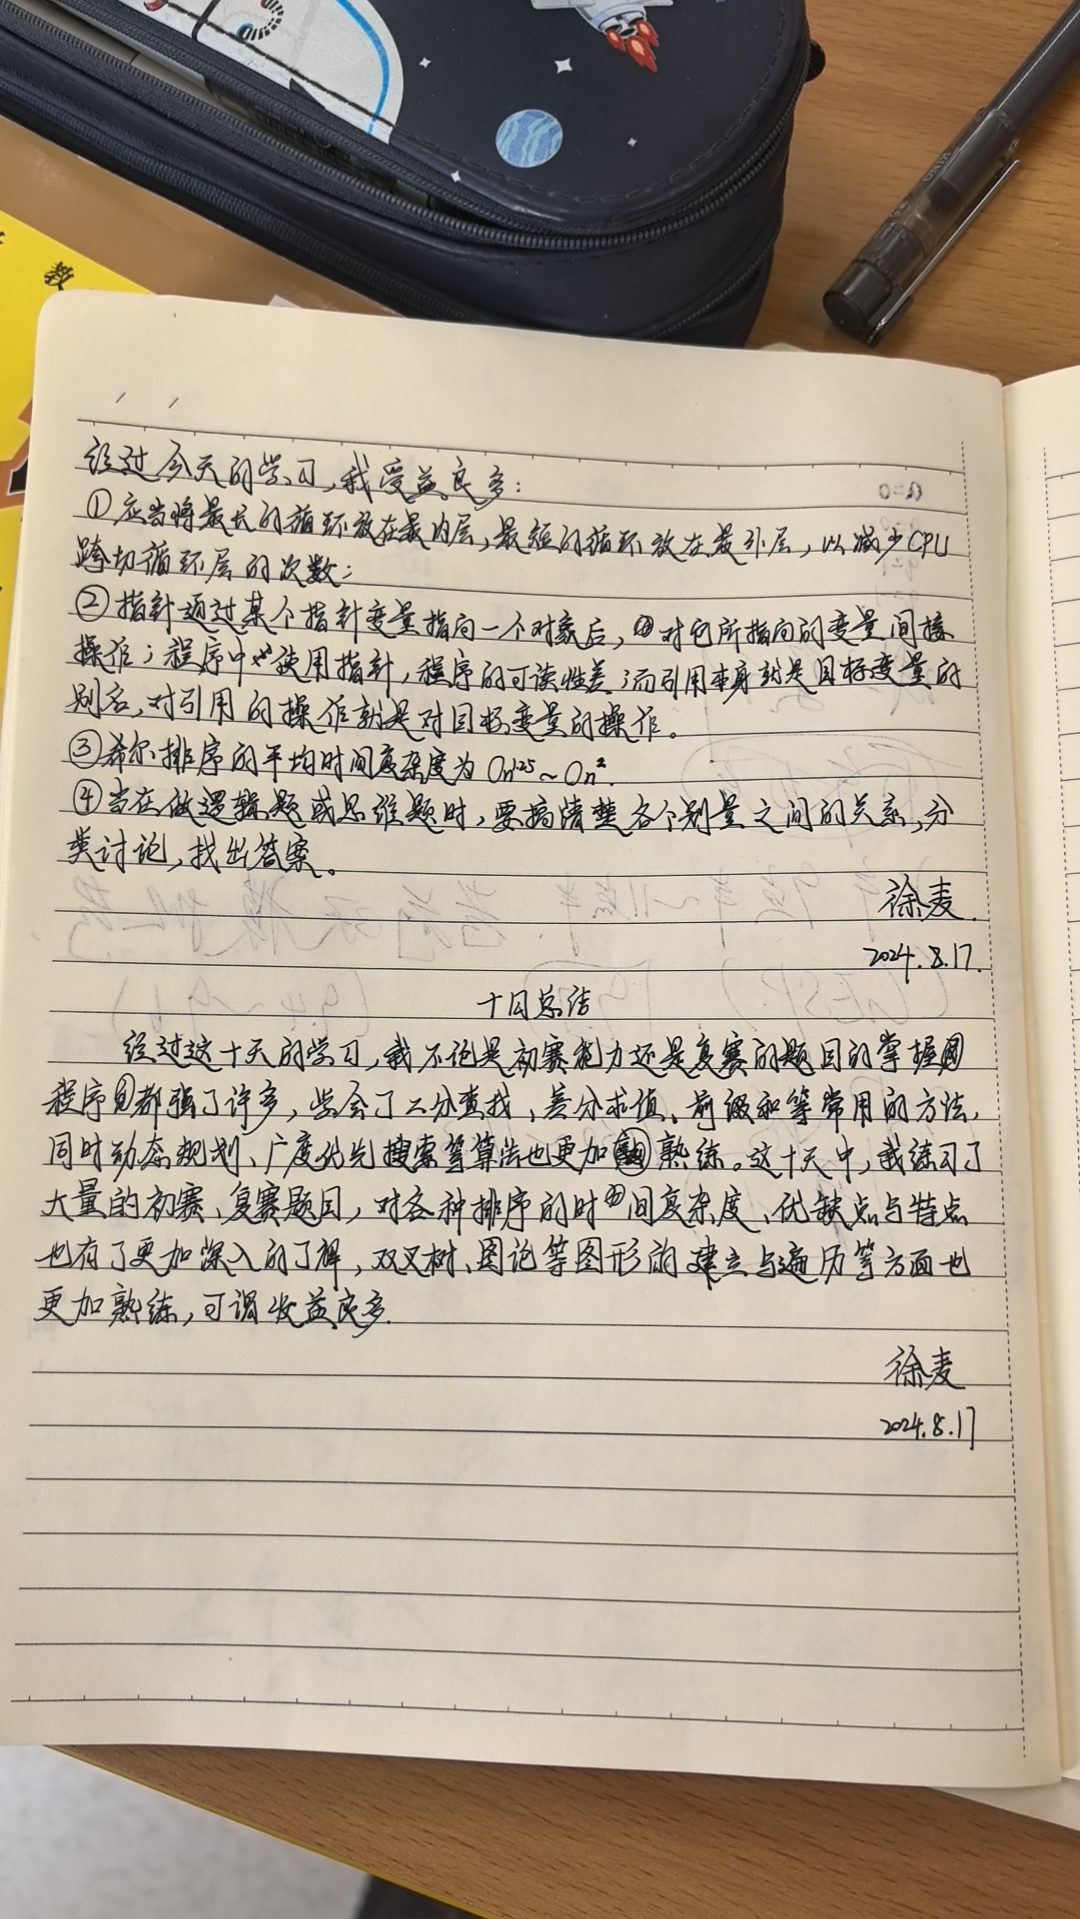 教
经过今天的学习,我受益良多:
①应当将最长的循环放在最内层,最短的循环放在最外层,以减少CPU
跨切循环层的次数;
②指针通过某个指针变量指向一个对象后,对它所指向的变量间接
操作;程序中使用指针,程序的可读性差;而引用本身就是目标变量的
别名,对引用的操作就是对目标变量的操作。
③希尔排序的平均时间复杂度为 On¹·²⁵~On².
④当在做逻辑题或思维题时,要搞清楚各个别量之间的关系,分
类讨论,找出答案。
徐麦
2024.8.17.
十日总结
经过这十天的学习,我不论是初赛能力还是复赛的题目的掌握
程序都强了许多,学会了二分查找、差分求值、前缀和等常用的方法,
同时动态规划、广度优先搜索等算法也更加熟练。这十天中,我练习了
大量的初赛、复赛题目,对各种排序的时间复杂度、优缺点与特点
也有了更加深入的了解,双叉树、图论等图形的建立与遍历等方面也
更加熟练,可谓收益良多.
徐麦
2024.8.17